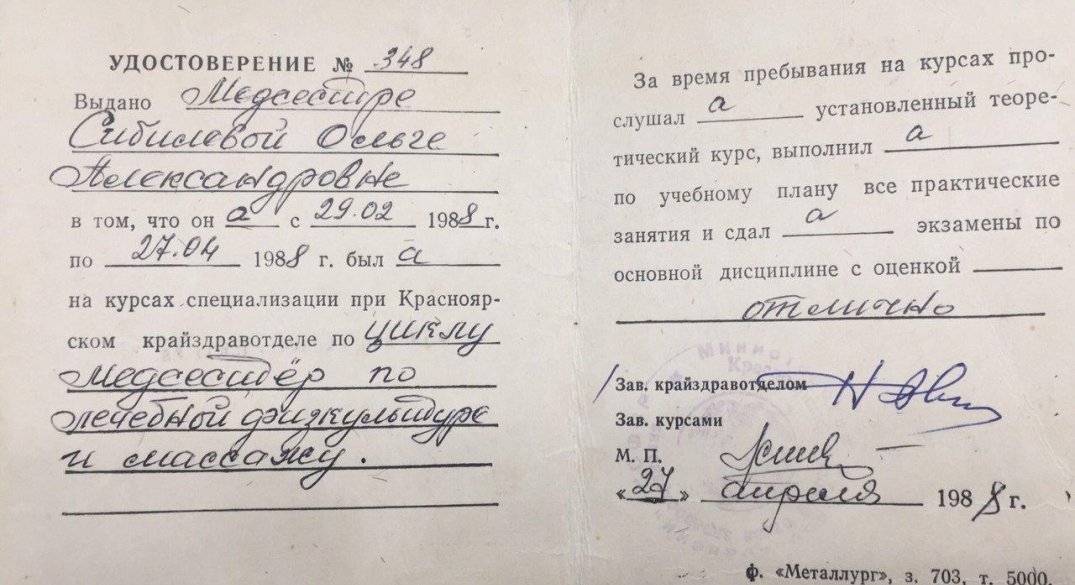 УДОСТОВЕРЕНИЕ № 348
Выдано Медсестре
Сибилевой Ольге
Александровне
в том, что он а с 29.02 1988 г.
по 27.04 1988 г. был а
на курсах специализации при Краснояр-
ском крайздравотделе по циклу
Медсестёр по
лечебной физкультуре
и массажу.
За время пребывания на курсах про-
слушал а установленный теоре-
тический курс, выполнил а
по учебному плану все практические
занятия и сдал а экзамены по
основной дисциплине с оценкой
отлично
Зав. крайздравотделом
Зав. курсами
М. П.
«27» апреля 1988 г.
ф. «Металлург», з. 703, т. 5000.